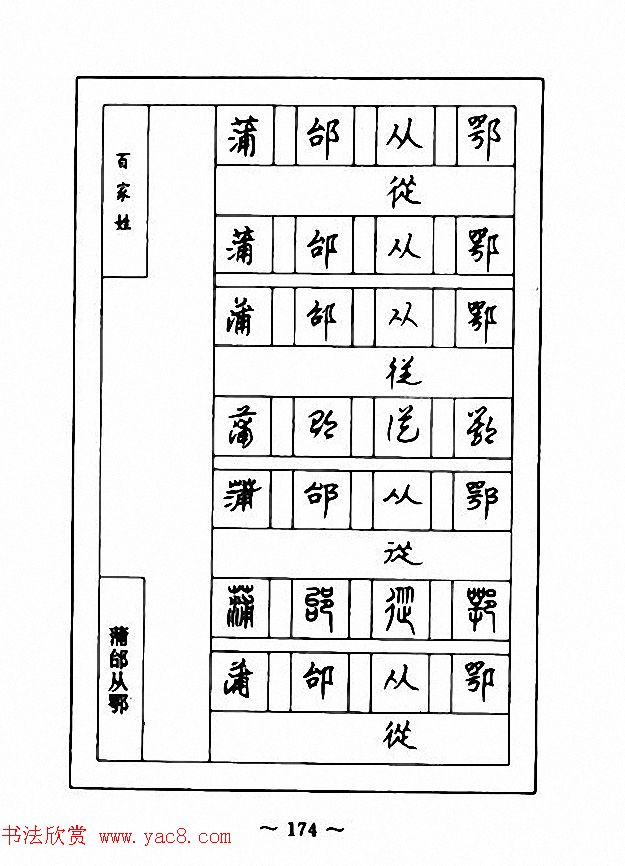 百家姓
蒲邰从鄂
蒲 邰 从 鄂
從
蒲 邰 从 鄂
蒲 邰 从 鄂
従
蒲 邰 從 鄂
蒲 邰 从 鄂
從
蒲 邰 從 鄂
蒲 邰 从 鄂
從
~ 174 ~
书法欣赏 www.yac8.com